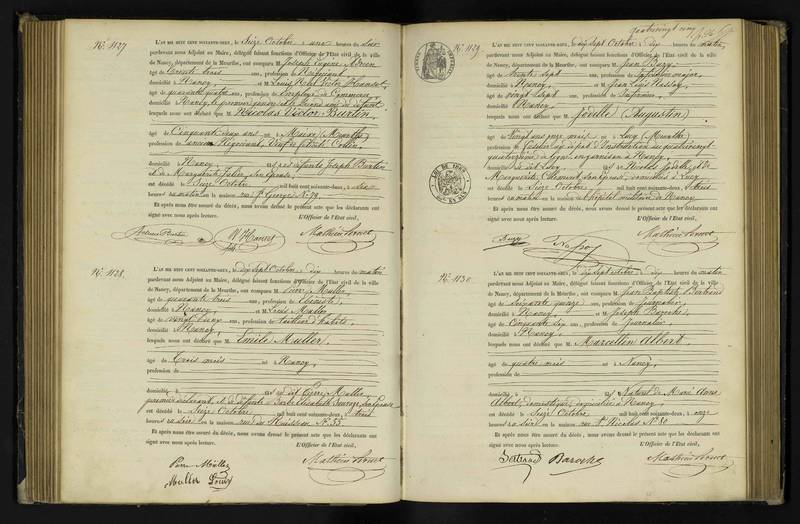 N.º 1127
L'AN MIL HUIT CENT SOIXANTE-DEUX, le Seize Octobre, à une heures du soir
pardevant nous Adjoint au Maire, délégué faisant fonctions d'Officier de l'Etat civil de la ville
de Nancy, département de la Meurthe, ont comparu M. Joseph Eugène
âgé de trente trois ans, profession de Négociant,
domicilié à Nancy et M. Louis Victor Hanset
âgé de quarante quatre ans, profession de Employé de Commerce,
domicilié à Nancy, le premier
lesquels nous ont déclaré que M. Nicolas Victor Burtin
âgé de Cinquante ans né à Maixe (Meurthe)
profession de ancien Négociant, Veuf de
domicilié à Nancy fils de défunts Joseph Burtin
et de Marguerite son épouse
est décédé le Seize Octobre mil huit cent soixante-deux, à dix
heures du matin en la maison rue St Georges N.º 79
Et après nous être assuré du décès, nous avons dressé le présent acte que les déclarants ont
signé avec nous après lecture. L'Officier de l'Etat civil,
Hanset
N.º 1128.
L'AN MIL HUIT CENT SOIXANTE-DEUX, le dix sept Octobre, à dix heures du matin
pardevant nous Adjoint au Maire, délégué faisant fonctions d'Officier de l'Etat civil de la ville
de Nancy, département de la Meurthe, ont comparu M. Pierre Muller,
âgé de quarante trois ans, profession de Ebéniste,
domicilié à Nancy et M. Louis Muller
âgé de vingt ans, profession de tailleur d'habits,
domicilié à Nancy,
lesquels nous ont déclaré que M. Emile Muller
âgé de trois mois né à Nancy,
profession de
domicilié à fils du dit Pierre Muller,
premier déclarant, et de défunte Elisabeth son épouse
est décédé le Seize Octobre mil huit cent soixante-deux, à trois
heures du soir en la maison rue N.º 35
Et après nous être assuré du décès, nous avons dressé le présent acte que les déclarants ont
signé avec nous après lecture. L'Officier de l'Etat civil,
Pierre Muller
Muller Louis
quatrevingt cinq
N.º 1129
L'AN MIL HUIT CENT SOIXANTE-DEUX, le dix sept Octobre, à dix heures du matin,
pardevant nous Adjoint au Maire, délégué faisant fonctions d'Officier de l'Etat civil de la ville
de Nancy, département de la Meurthe, ont comparu M. Jean
âgé de trente sept ans, profession de Infirmier major,
domicilié à Nancy, et M. Jean Louis
âgé de vingt sept ans, profession de Infirmier,
domicilié à Nancy,
lesquels nous ont déclaré que M. Jodelle (Augustin)
âgé de vingt ans mois né à Lucy (Meurthe)
profession de
de ligne, en garnison à Nancy,
domicilié à Lucy fils de Nicolas Jodelle et de
Marguerite son épouse, domiciliés à Lucy
est décédé le Seize Octobre mil huit cent soixante-deux, à trois
heures du matin en la maison l'hôpital militaire de Nancy
Et après nous être assuré du décès, nous avons dressé le présent acte que les déclarants ont
signé avec nous après lecture. L'Officier de l'Etat civil,
N.º 1130
L'AN MIL HUIT CENT SOIXANTE-DEUX, le dix sept octobre, à dix heures du matin
pardevant nous Adjoint au Maire, délégué faisant fonctions d'Officier de l'Etat civil de la ville
de Nancy, département de la Meurthe, ont comparu M. Jean Baptiste Bertrand
âgé de soixante quinze ans, profession de Journalier,
domicilié à Nancy, et M. Joseph Baroche,
âgé de Cinquante six ans, profession de Journalier,
domicilié à Nancy,
lesquels nous ont déclaré que M. Marcellin Albert
âgé de quatre mois né à Nancy,
profession de
domicilié à fils Naturel de Marie Anne
Albert, domestique, domiciliée à Nancy,
est décédé le Seize Octobre mil huit cent soixante-deux, à onze
heures du soir en la maison rue St Nicolas N.º 30
Et après nous être assuré du décès, nous avons dressé le présent acte que les déclarants ont
signé avec nous après lecture. L'Officier de l'Etat civil,
Bertrand Baroche